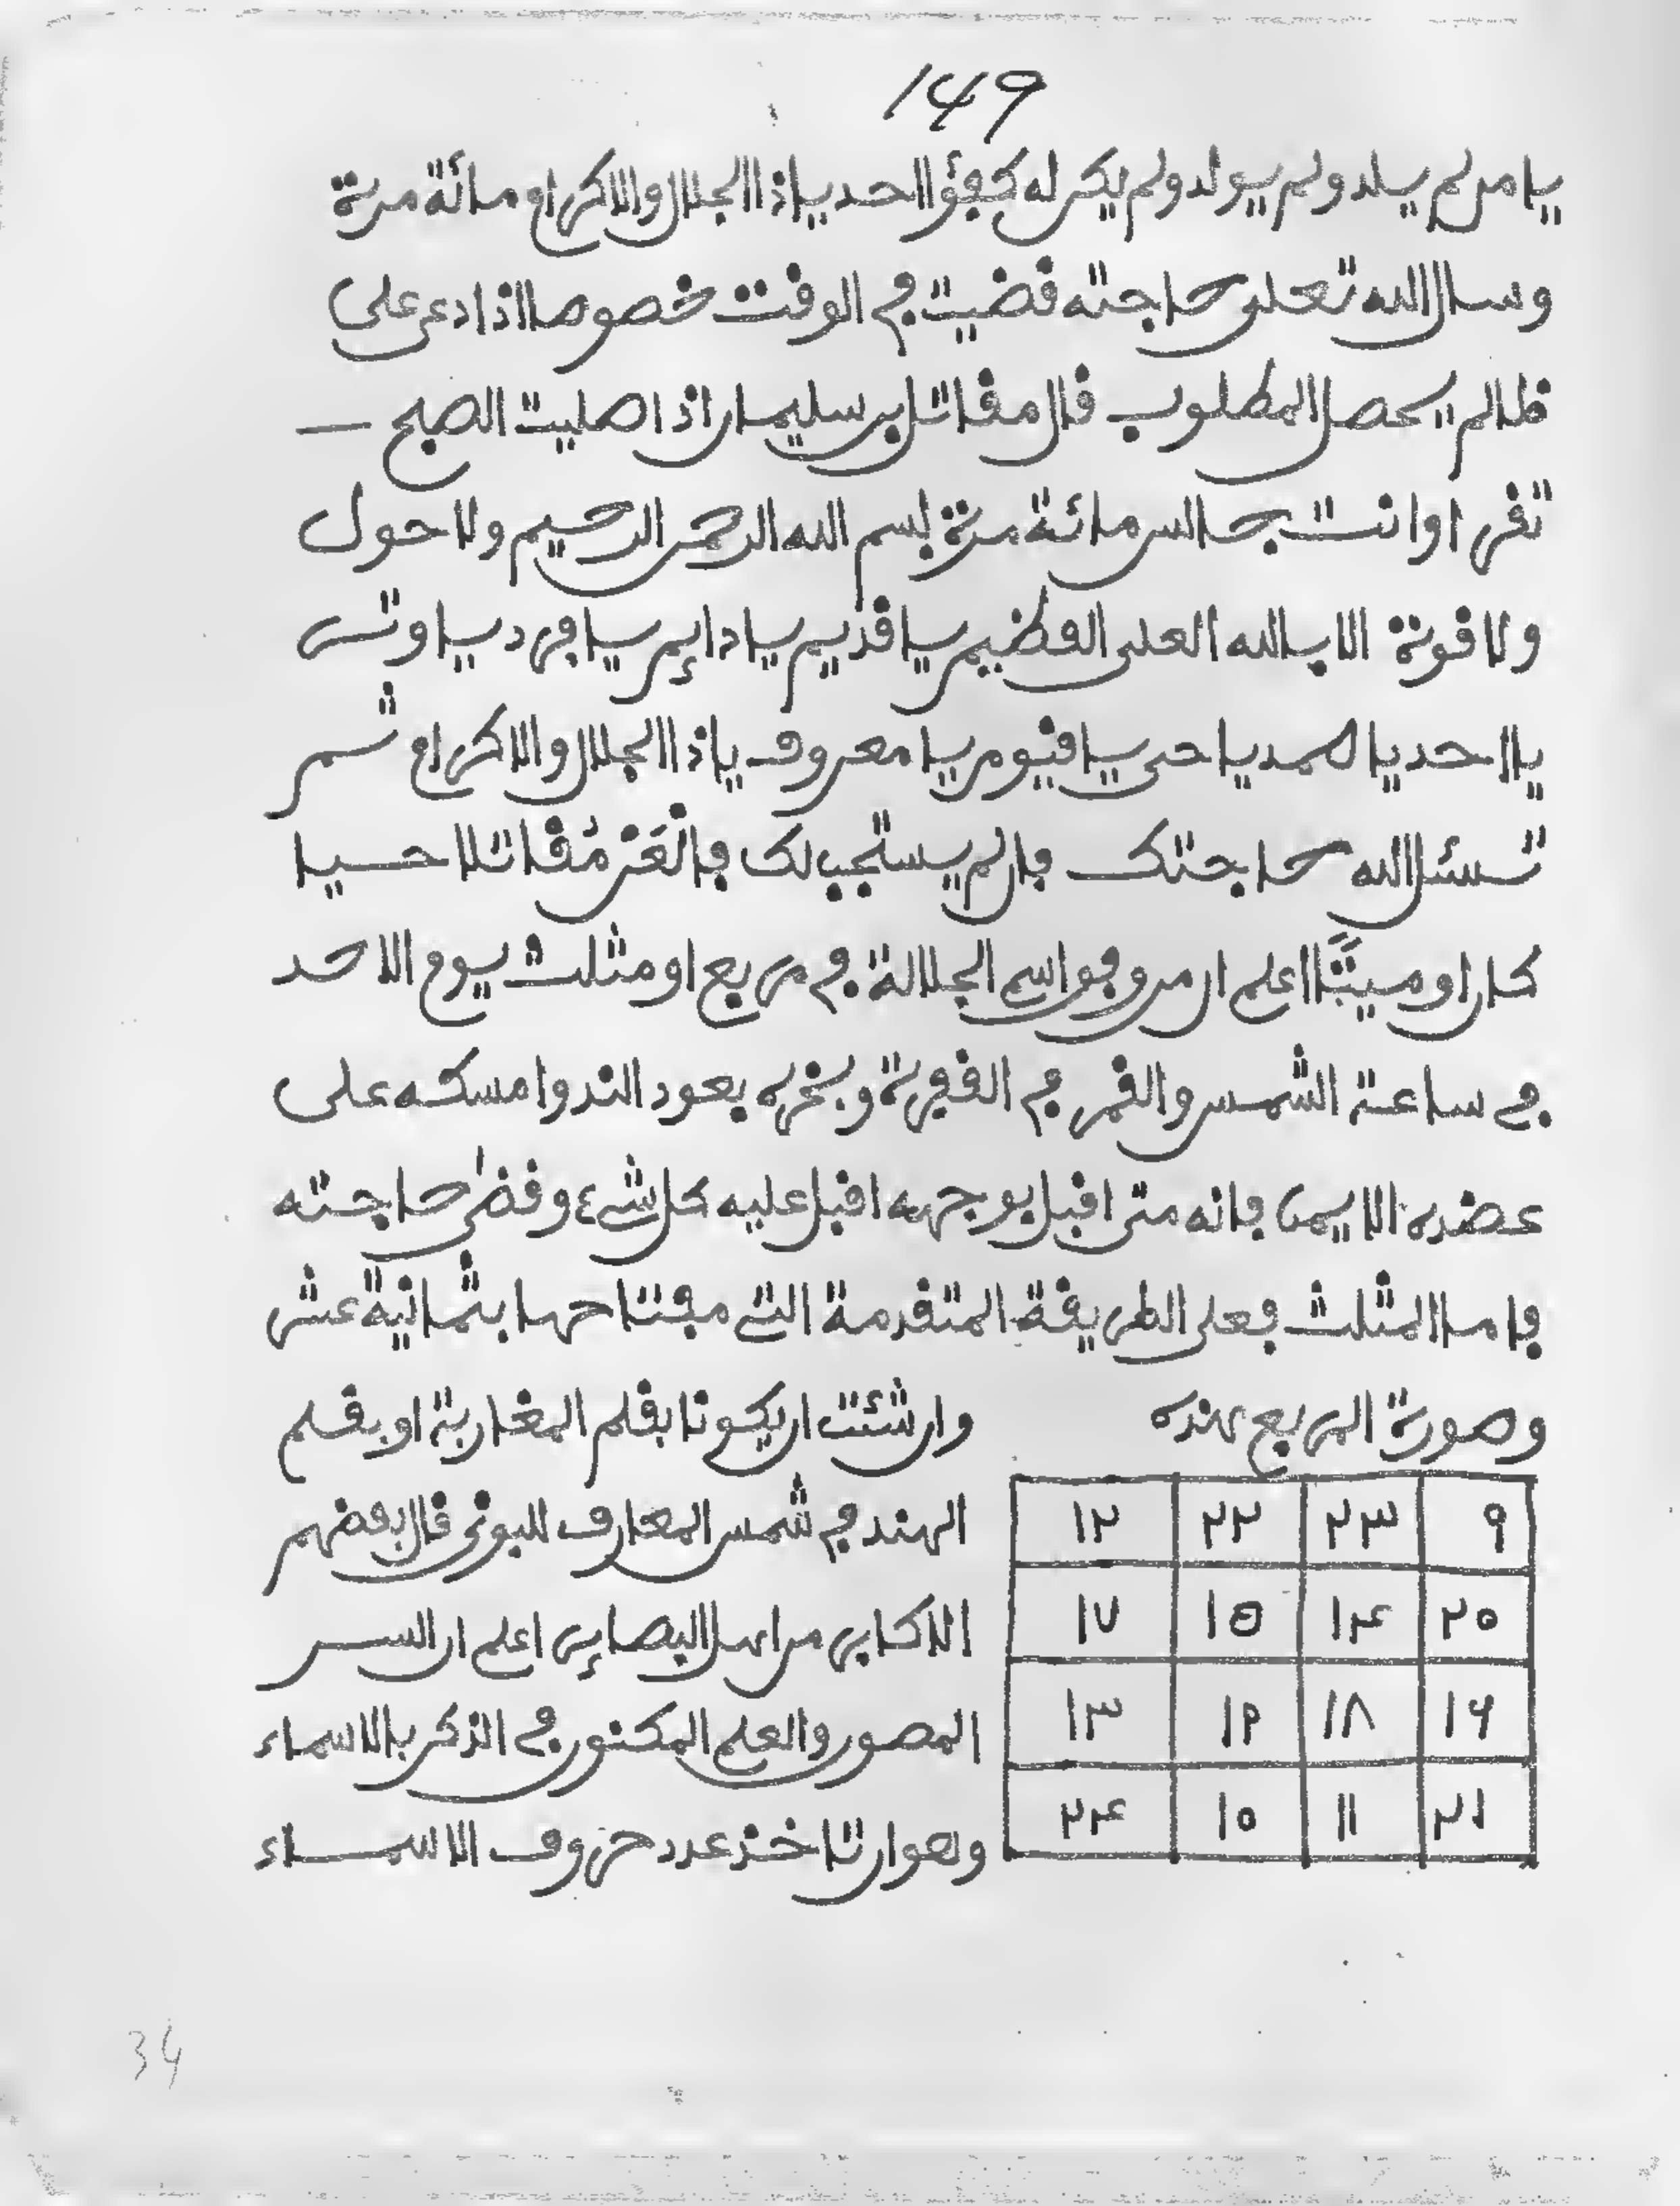 149
يا من لم يلد ولم يولد ولم يكن له كفؤا احد ياذا الجلال والاكرام مائة مرة
وسال الله تعلى حاجته قضيت في الوقت خصوصا اذا دعى على
ظالم يحصل المطلوب قال مقاتل بن سليمان اذا صليت الصبح
تقرا وانت جالس مائة مرة بسم الله الرحمن الرحيم ولا حول
ولا قوة الا بالله العلي العظيم يا قديم يا دايم يا فرد يا وتر
يا احد يا صمد يا حي يا قيوم يا معروف ياذا الجلال والاكرام ثم
تسئل الله حاجتك فان لم يستجب لك فالعن مقاتلا حيا
كان او ميتا اعلم ان من وفق اسم الجلالة في مربع او مثلث يوم الاحد
في ساعة الشمس والقمر في وبخره بعود الند وامسكه على
عضده الايمن فانه متى اقبل بوجهه اقبل عليه كل شيء وقضى حاجته
فاما المثلث فعلى الطريقة المتقدمة التي مفتاحها بثمانية عشر
وصورة المربع هذه
٩ ٢٣ ٢٢ ١٢
٢٠ ١٤ ١٥ ١٧
١٦ ١٨ ١٩ ١٣
٢١ ١١ ١٠ ٢٤
وان شئت ان يكونا بقلم المغاربة او بقلم
الهند في شمس المعارف للبوني قال بعضهم
الاكابر من اهل البصاير اعلم ان السر
المصون والعلم المكنون في الذكر بالاسماء
وهو ان تاخذ عدد حروف الاسماء
34